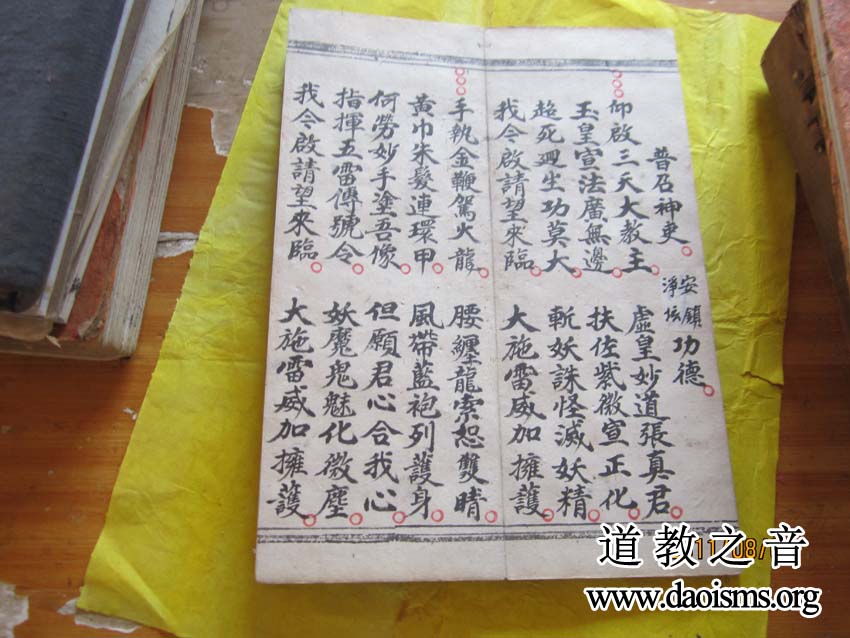 普召神吏 安鎮淨坛 功德
仰啟三天大教主 虛皇妙道張真君
玉皇宣法廣無邊 扶佐紫微宣正化
超死廻生功莫大 斬妖誅怪滅妖精
我今啟請望來臨 大施雷威加擁護
手執金鞭駕火龍 腰纏龍索恕雙晴
黃巾朱髮連環甲 風帶藍袍列護身
何勞妙手塗吾像 但願君心合我心
指揮五雷傳號令 妖魔鬼魅化微塵
我今啟請望來臨 大施雷威加擁護
道教之音
www.daoisms.org